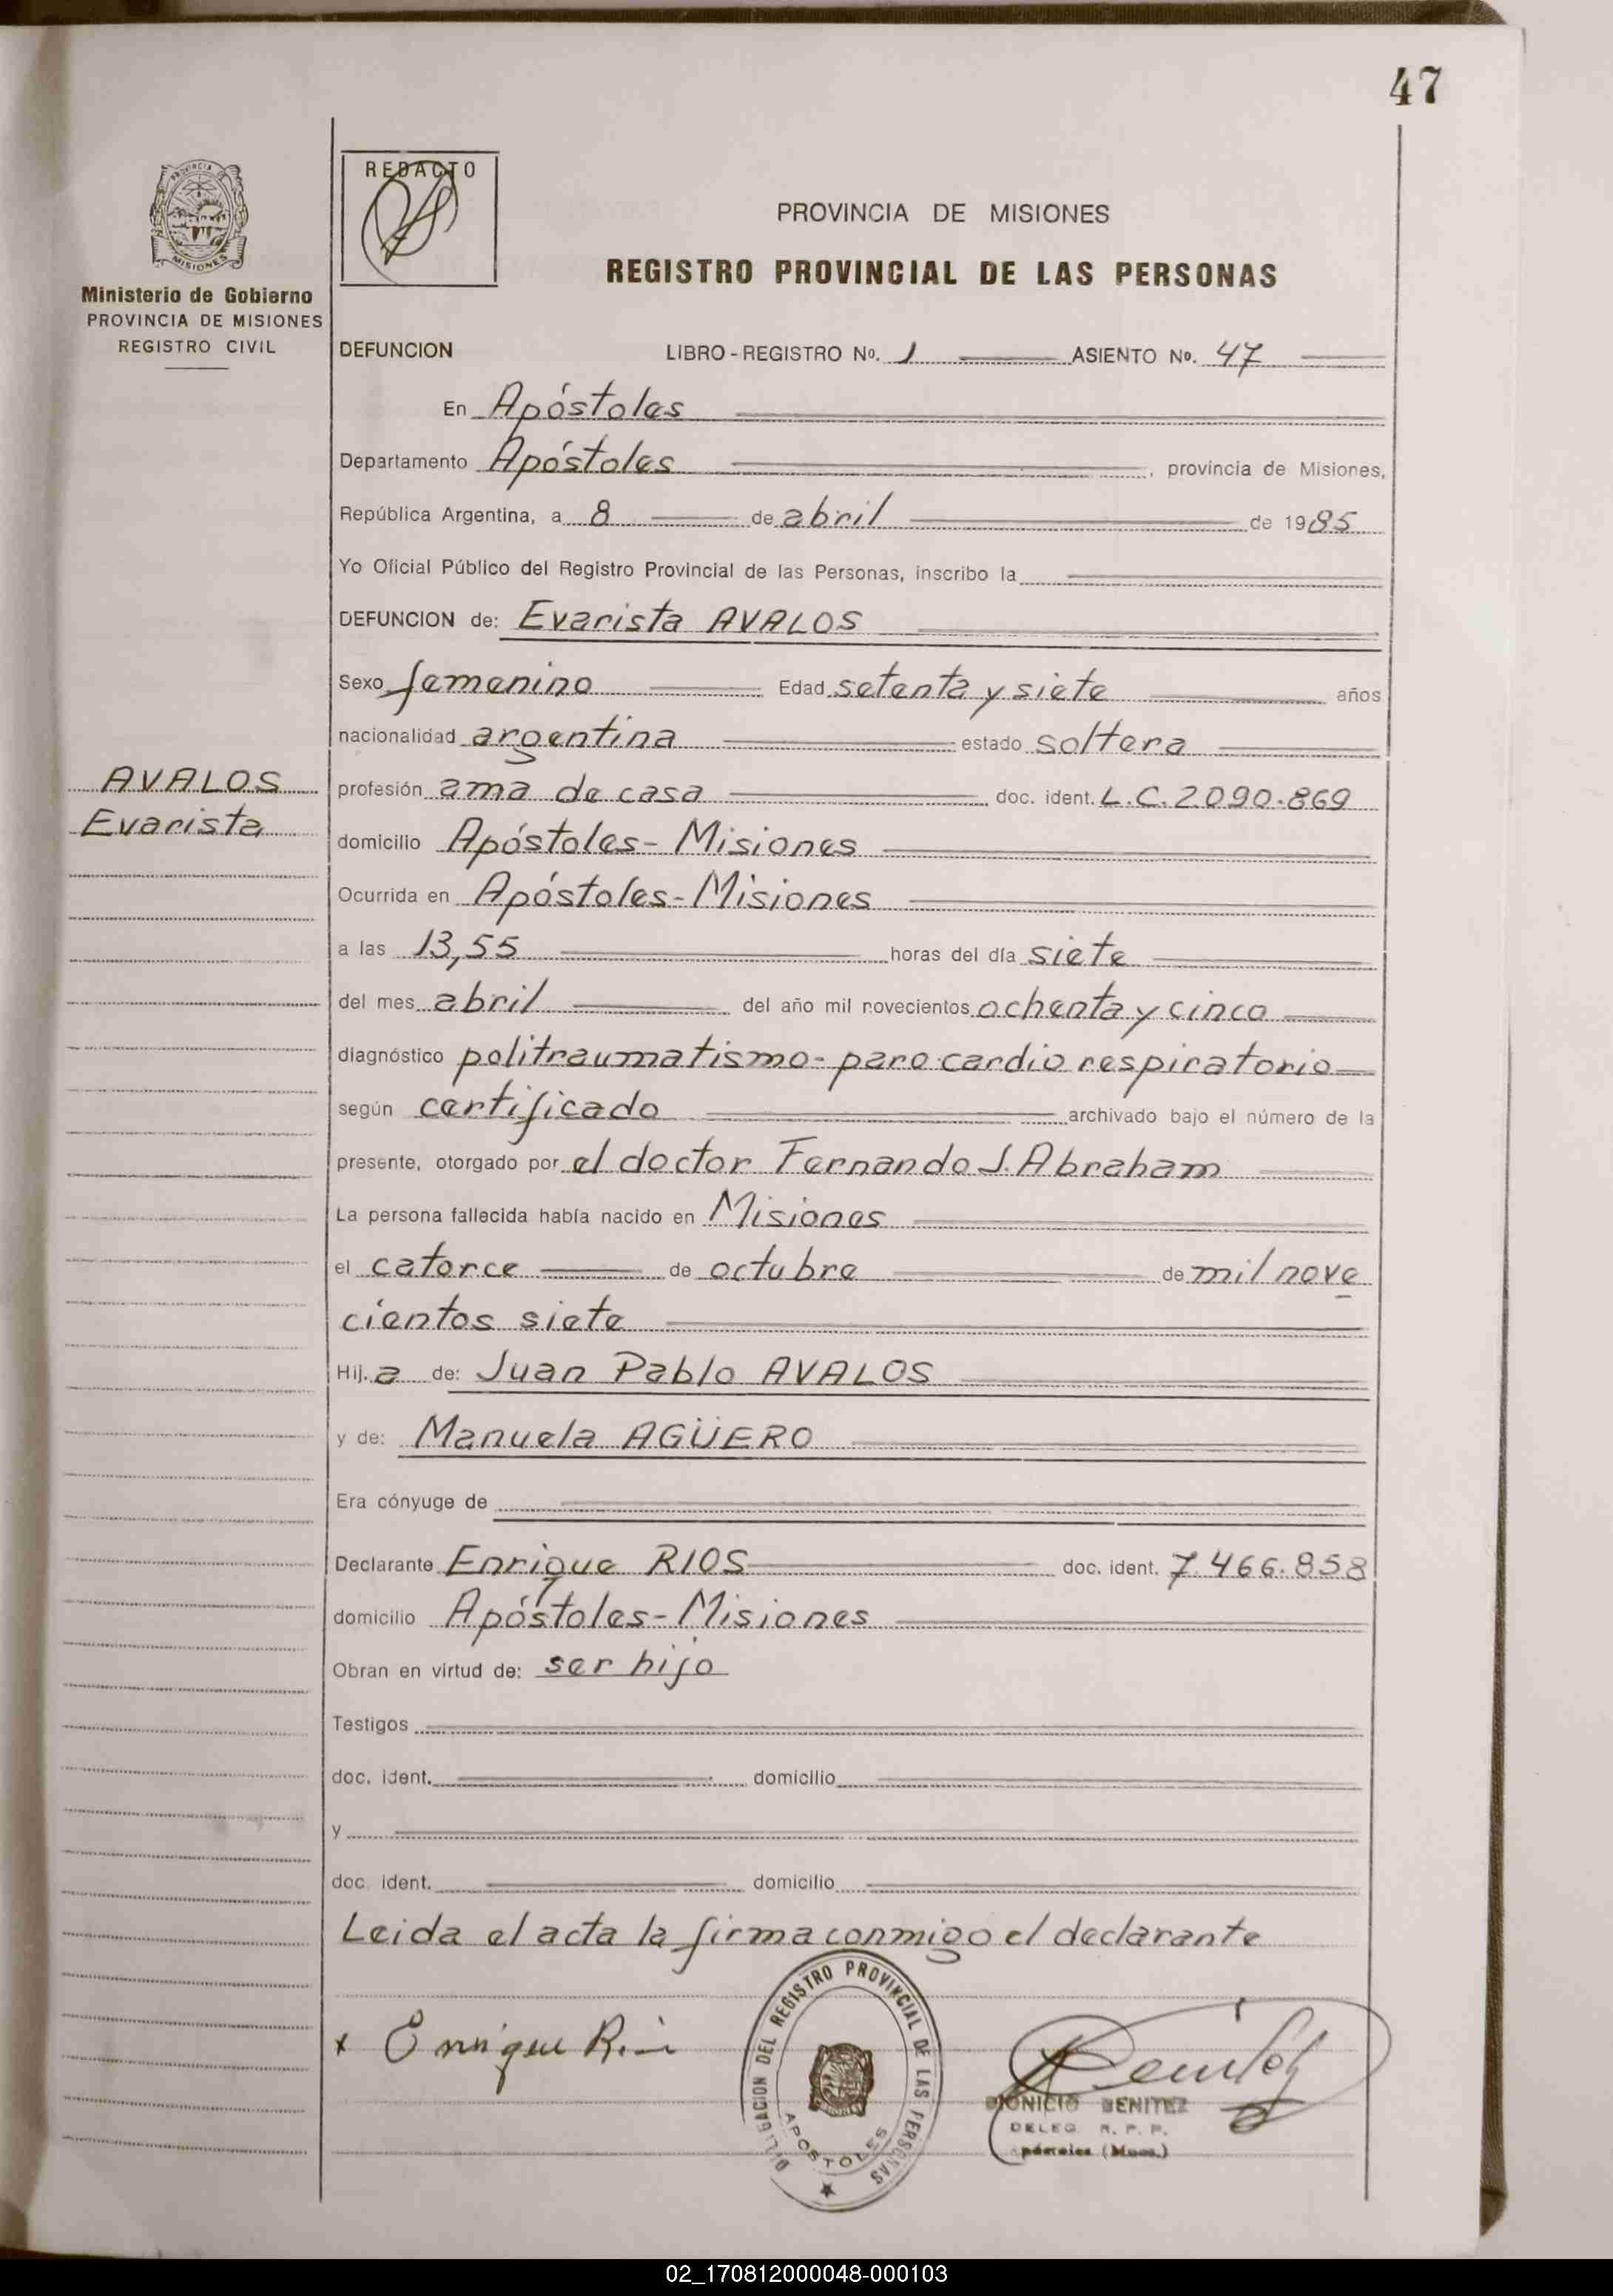 47
PROVINCIA DE
MISIONES
Ministerio de Gobierno
PROVINCIA DE MISIONES
REGISTRO CIVIL
REDACTO
PROVINCIA DE MISIONES
REGISTRO PROVINCIAL DE LAS PERSONAS
DEFUNCION LIBRO-REGISTRO Nº. 1 ASIENTO Nº. 47
En Apóstoles
Departamento Apóstoles, provincia de Misiones,
República Argentina, a 8 de abril de 1985
Yo Oficial Público del Registro Provincial de las Personas, inscribo la
DEFUNCION de: Evarista AVALOS
Sexo femenino Edad setenta y siete años
nacionalidad argentina estado soltera
AVALOS
Evarista
profesión ama de casa doc. ident. L.C. 2090.869
domicilio Apóstoles-Misiones
Ocurrida en Apóstoles-Misiones
a las 13,55 horas del día siete
del mes abril del año mil novecientos ochenta y cinco
diagnóstico politraumatismo-paro cardio respiratorio
según certificado archivado bajo el número de la
presente, otorgado por el doctor Fernando J. Abraham
La persona fallecida había nacido en Misiones
el catorce de octubre de mil nove
cientos siete
Hij.a de: Juan Pablo AVALOS
y de: Manuela AGÜERO
Era cónyuge de
Declarante Enrique RIOS doc. ident. 7.466.858
domicilio Apóstoles-Misiones
Obran en virtud de: ser hijo
Testigos
doc. ident. domicilio
y
doc. ident. domicilio
Leida el acta la firma conmigo el declarante
x Enrique Rios
DELEGACION DEL REGISTRO PROVINCIAL DE LAS PERSONAS
APOSTOLES
DIONICIO BENITEZ
DELEG. R. P. P.
Apóstoles (Mnes.)
02_170812000048-000103